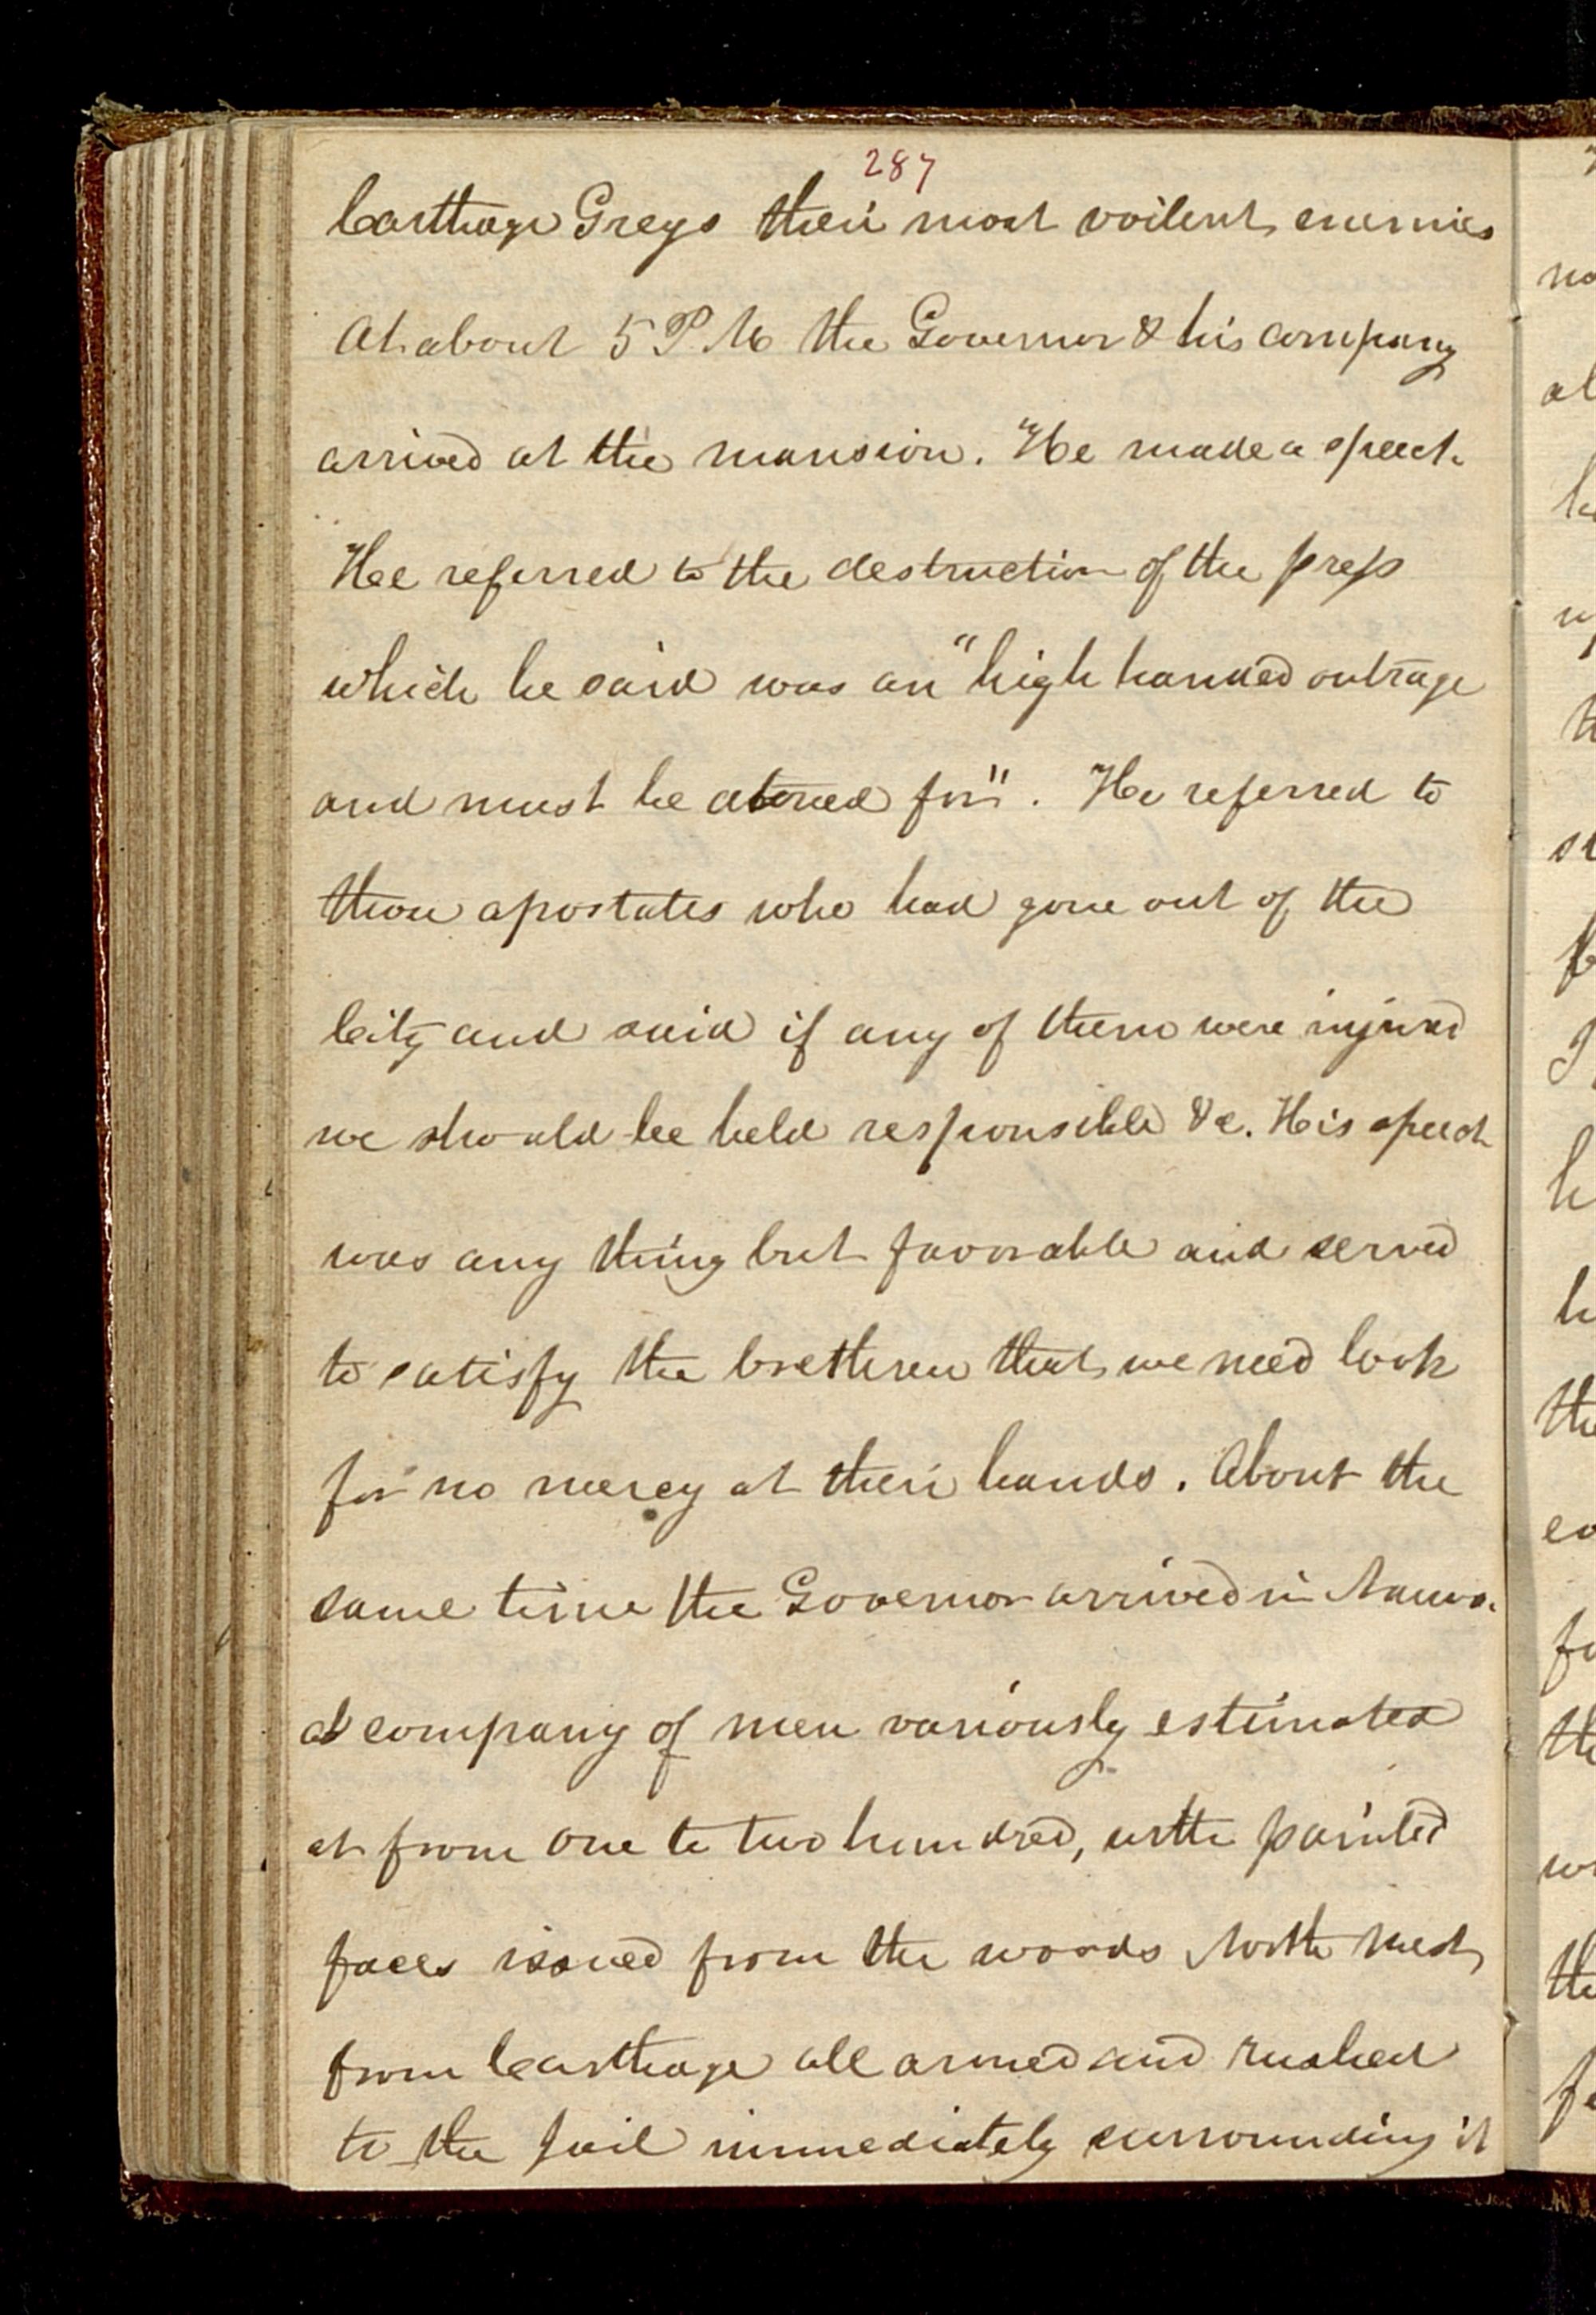 287
Carthage Greys their most voilent enemies
At about 5 P M the Governor & his company
arrived at the mansion. He made a speech.
He referred to the destruction of the press
which he said was an "high handed outrage
and must be atoned for". He referred to
those apostates who had gone out of the
City and said if any of them were injured
we should be held responsible &c. His speech
was any thing but favorable and served
to satisfy the brethren that we need look
for no mercy at their hands. About the
same time the Governor arrived in Nauvoo.
a company of men variously estimated
at from one to two hundred, with painted
faces issued from the woods North West
from Carthage all armed and rushed
to the Jail immediately surrounding it